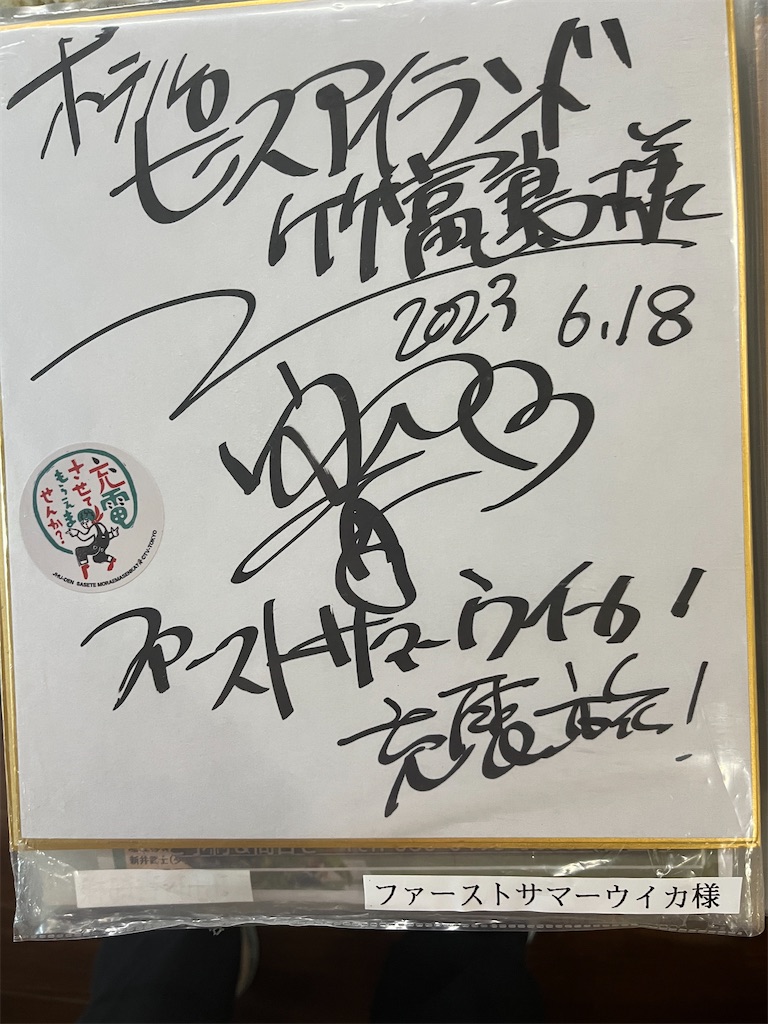 ホテル
ピースアイランド
竹富島様
2023 6.18
充電
させて
もらえま
せんか?
JYU-DEN SASETE MORAEMASENKA? @CTV-TOKYO
ファーストサマーウイカ!
充電旅!
ファーストサマーウイカ様